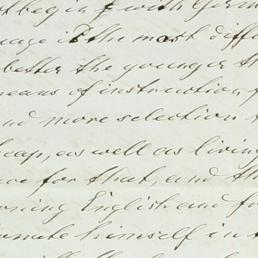 ot begin with Germ
uage is the most diffi
better the younger th
means of instruction, f
nd more selection
heap, as well as living
ve for that, and th
rning English and f
omate himself in t